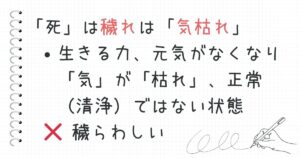 「死」は穢れは「気枯れ」
• 生きる力、元気がなくなり
「気」が「枯れ」、正常
（清浄）ではない状態
❌ 穢らわしい